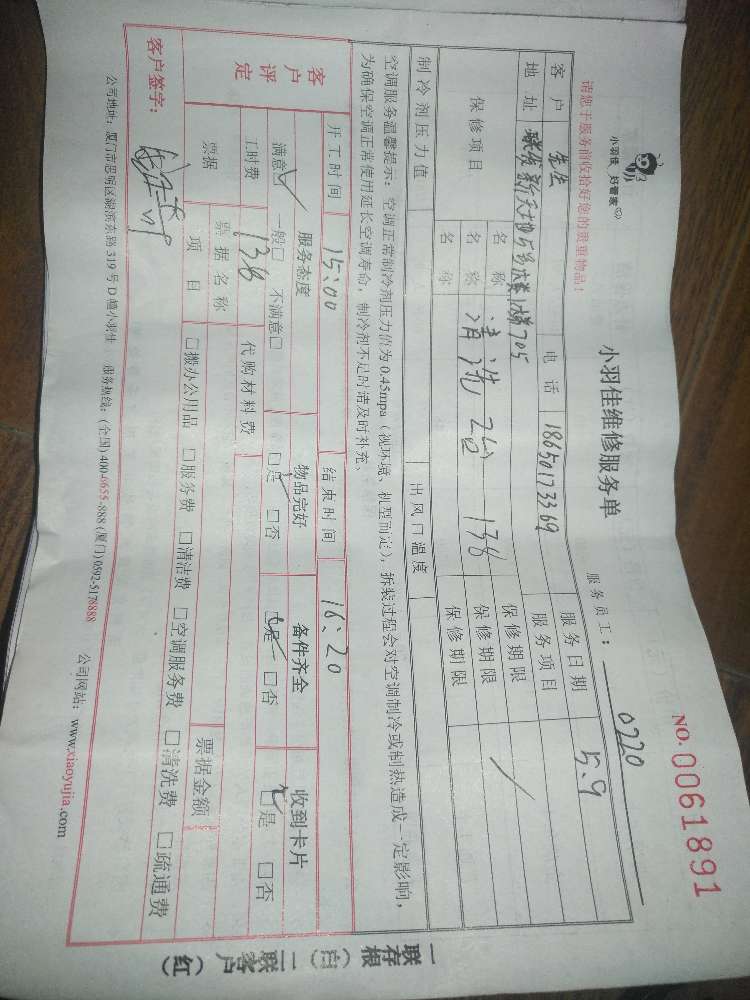 小羽佳 好管家
小羽佳维修服务单
NO.0061891
请您于服务前收拾好您的贵重物品!
服务员工: 0220
客户 先生 电话 18650173369 服务日期 5.9
地址 联发新天地5号 1梯705 服务项目
保修项目 名称 保修期限
名称 清洗2台 138 保修期限
名称 保修期限
制冷剂压力值 出风口温度
空调服务温馨提示:空调正常制冷剂压力值为0.45mpa(视环境、机型而定),拆装过程会对空调制冷或制热造成一定影响,
为确保空调正常使用延长空调寿命,制冷剂不足时请及时补充、
开工时间 15:00 结束时间 16:20
客户评定
服务态度 物品完好 备件齐全 收到卡片
满意☑ 一般□ 不满意□ ☑是 □否 ☑是 □否 ☑是 □否
工时费 138 代购材料费
票据 票据名称 票据金额
项目 □搬办公用品 □服务费 □清洁费 □空调服务费 □清洗费 □疏通费
客户签字:
公司地址:厦门市思明区湖滨东路319号D幢小羽佳 服务热线:(全国)400-6655-888(厦门)0592-5176888 公司网站:www.xiaoyujia.com
一联存根(白)二联客户(红)